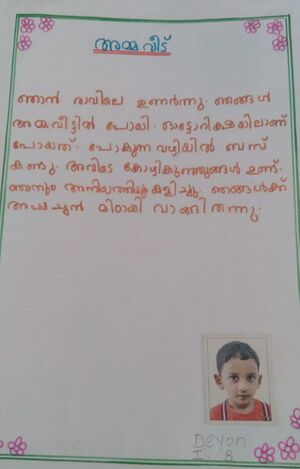 അമ്മ വീട്
ഞാൻ രാവിലെ ഉണർന്നു. ഞങ്ങൾ
അമ്മവീട്ടിൽ പോയി. ഓട്ടോറിക്ഷയിലാണ്
പോയത്. പോകുന്ന വഴിയിൽ ബസ്
കണ്ടു. അവിടെ കോഴികുഞ്ഞുങ്ങൾ ഉണ്ട്.
ഞാനും അനിയത്തിയുംകളിച്ചു. ഞങ്ങൾക്ക്
അപ്പച്ചൻ മിഠായി വാങ്ങി തന്നു.
Deyon
I B